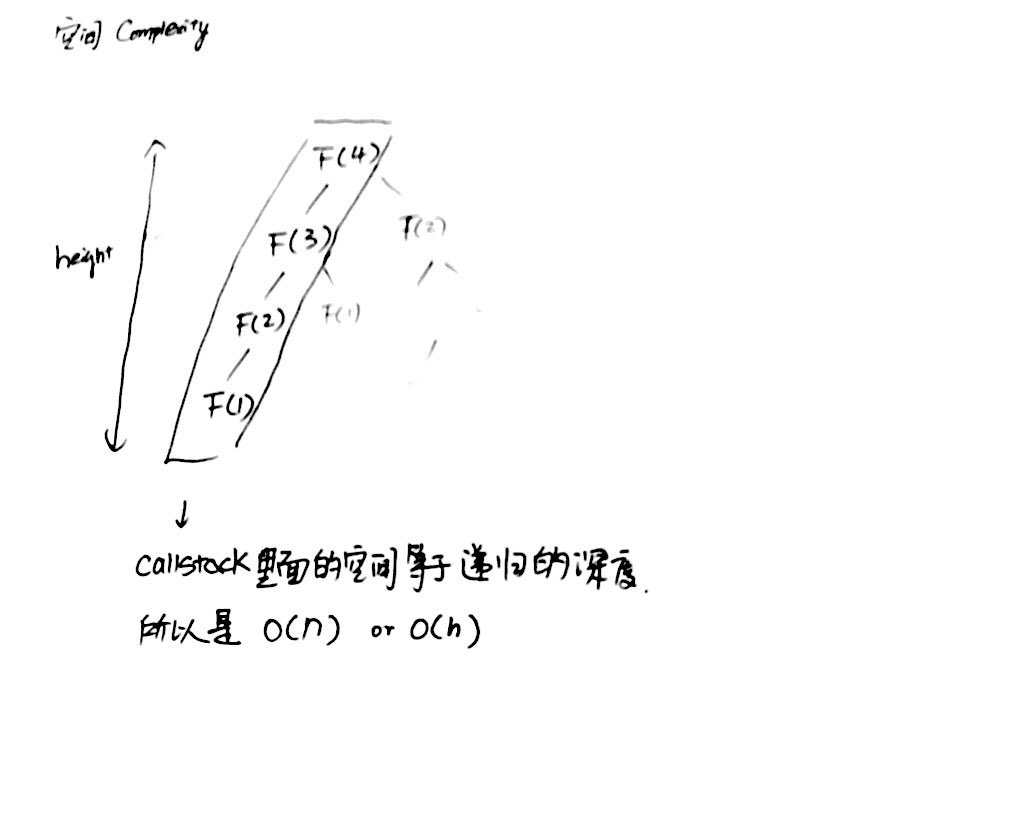 空间 Complexity
F(4)
F(2)
height
F(3)
F(1)
F(2)
F(1)
callstack 里面的空间等于递归的深度.
所以是 O(n) or O(h)